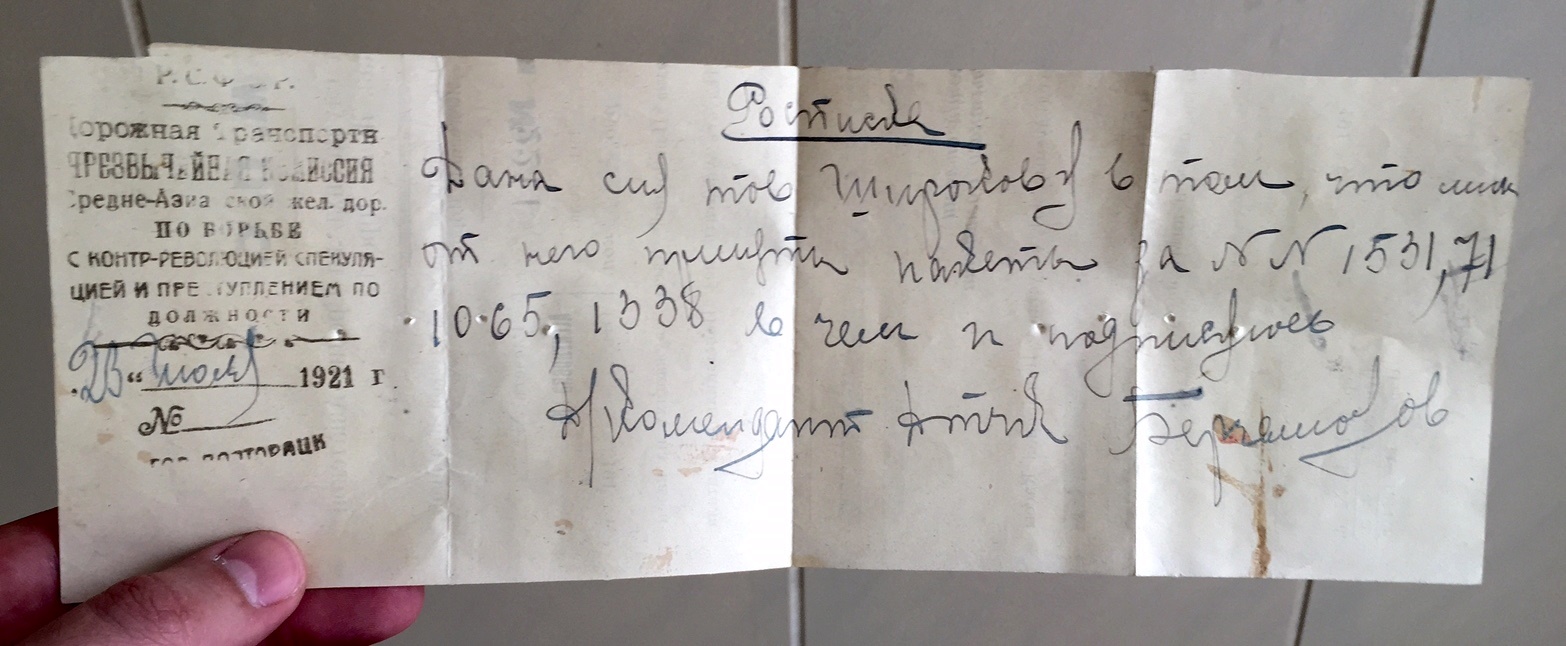 Р.С.Ф.С.Р.
Дорожная Транспортн
ЧРЕЗВЫЧАЙНАЯ КОМИССИЯ
Средне-Азиатской жел. дор.
ПО БОРЬБЕ
С КОНТР-РЕВОЛЮЦИЕЙ СПЕКУЛЯ-
ЦИЕЙ И ПРЕСТУПЛЕНИЕМ ПО
ДОЛЖНОСТИ
„23“ июля 1921 г.
№
ГОР. ПОЛТОРАЦК
Росписка
Дана сия тов Широкову в том, что мною
от него приняты пакеты за NN 1531, 71
1065, 1338 в чем и подписуюсь
Комендант